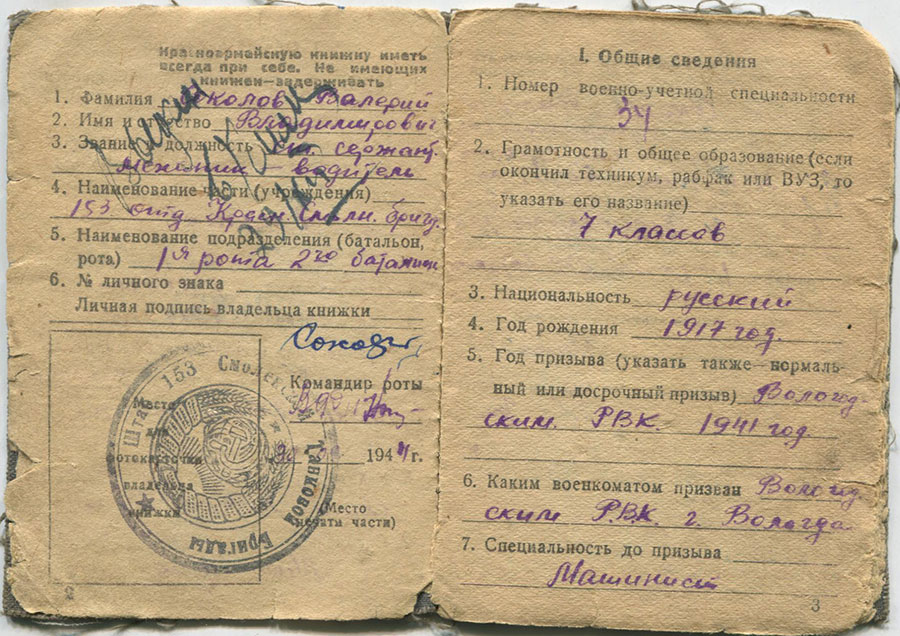 Красноармейскую книжку иметь
всегда при себе. Не имеющих
книжек—задерживать
1. Фамилия Соколов Валерий
2. Имя и отчество Владимирович
3. Звание и должность ст. сержант
механик водитель
4. Наименование части (учреждения)
153 отд. Красн. Смолен. бригд.
5. Наименование подразделения (батальон,
рота) 1я рота 2го баталион
6. № личного знака
Личная подпись владельца книжки
Командир роты
1944 г.
Место
для
фотокарточки
владельца
книжки
(Место
печати части)
Штаб 153 Смоленской Танковой Бригады
2
I. Общие сведения
1. Номер военно-учетной специальности
34
2. Грамотность и общее образование (если
окончил техникум, рабфак или ВУЗ, то
указать его название)
7 классов
3. Национальность русский
4. Год рождения 1917 год.
5. Год призыва (указать также—нормаль-
ный или досрочный призыв) Вологод-
ским РВК. 1941 год.
6. Каким военкоматом призван Вологод-
ским Р.В.К. г. Вологда.
7. Специальность до призыва
Машинист
3